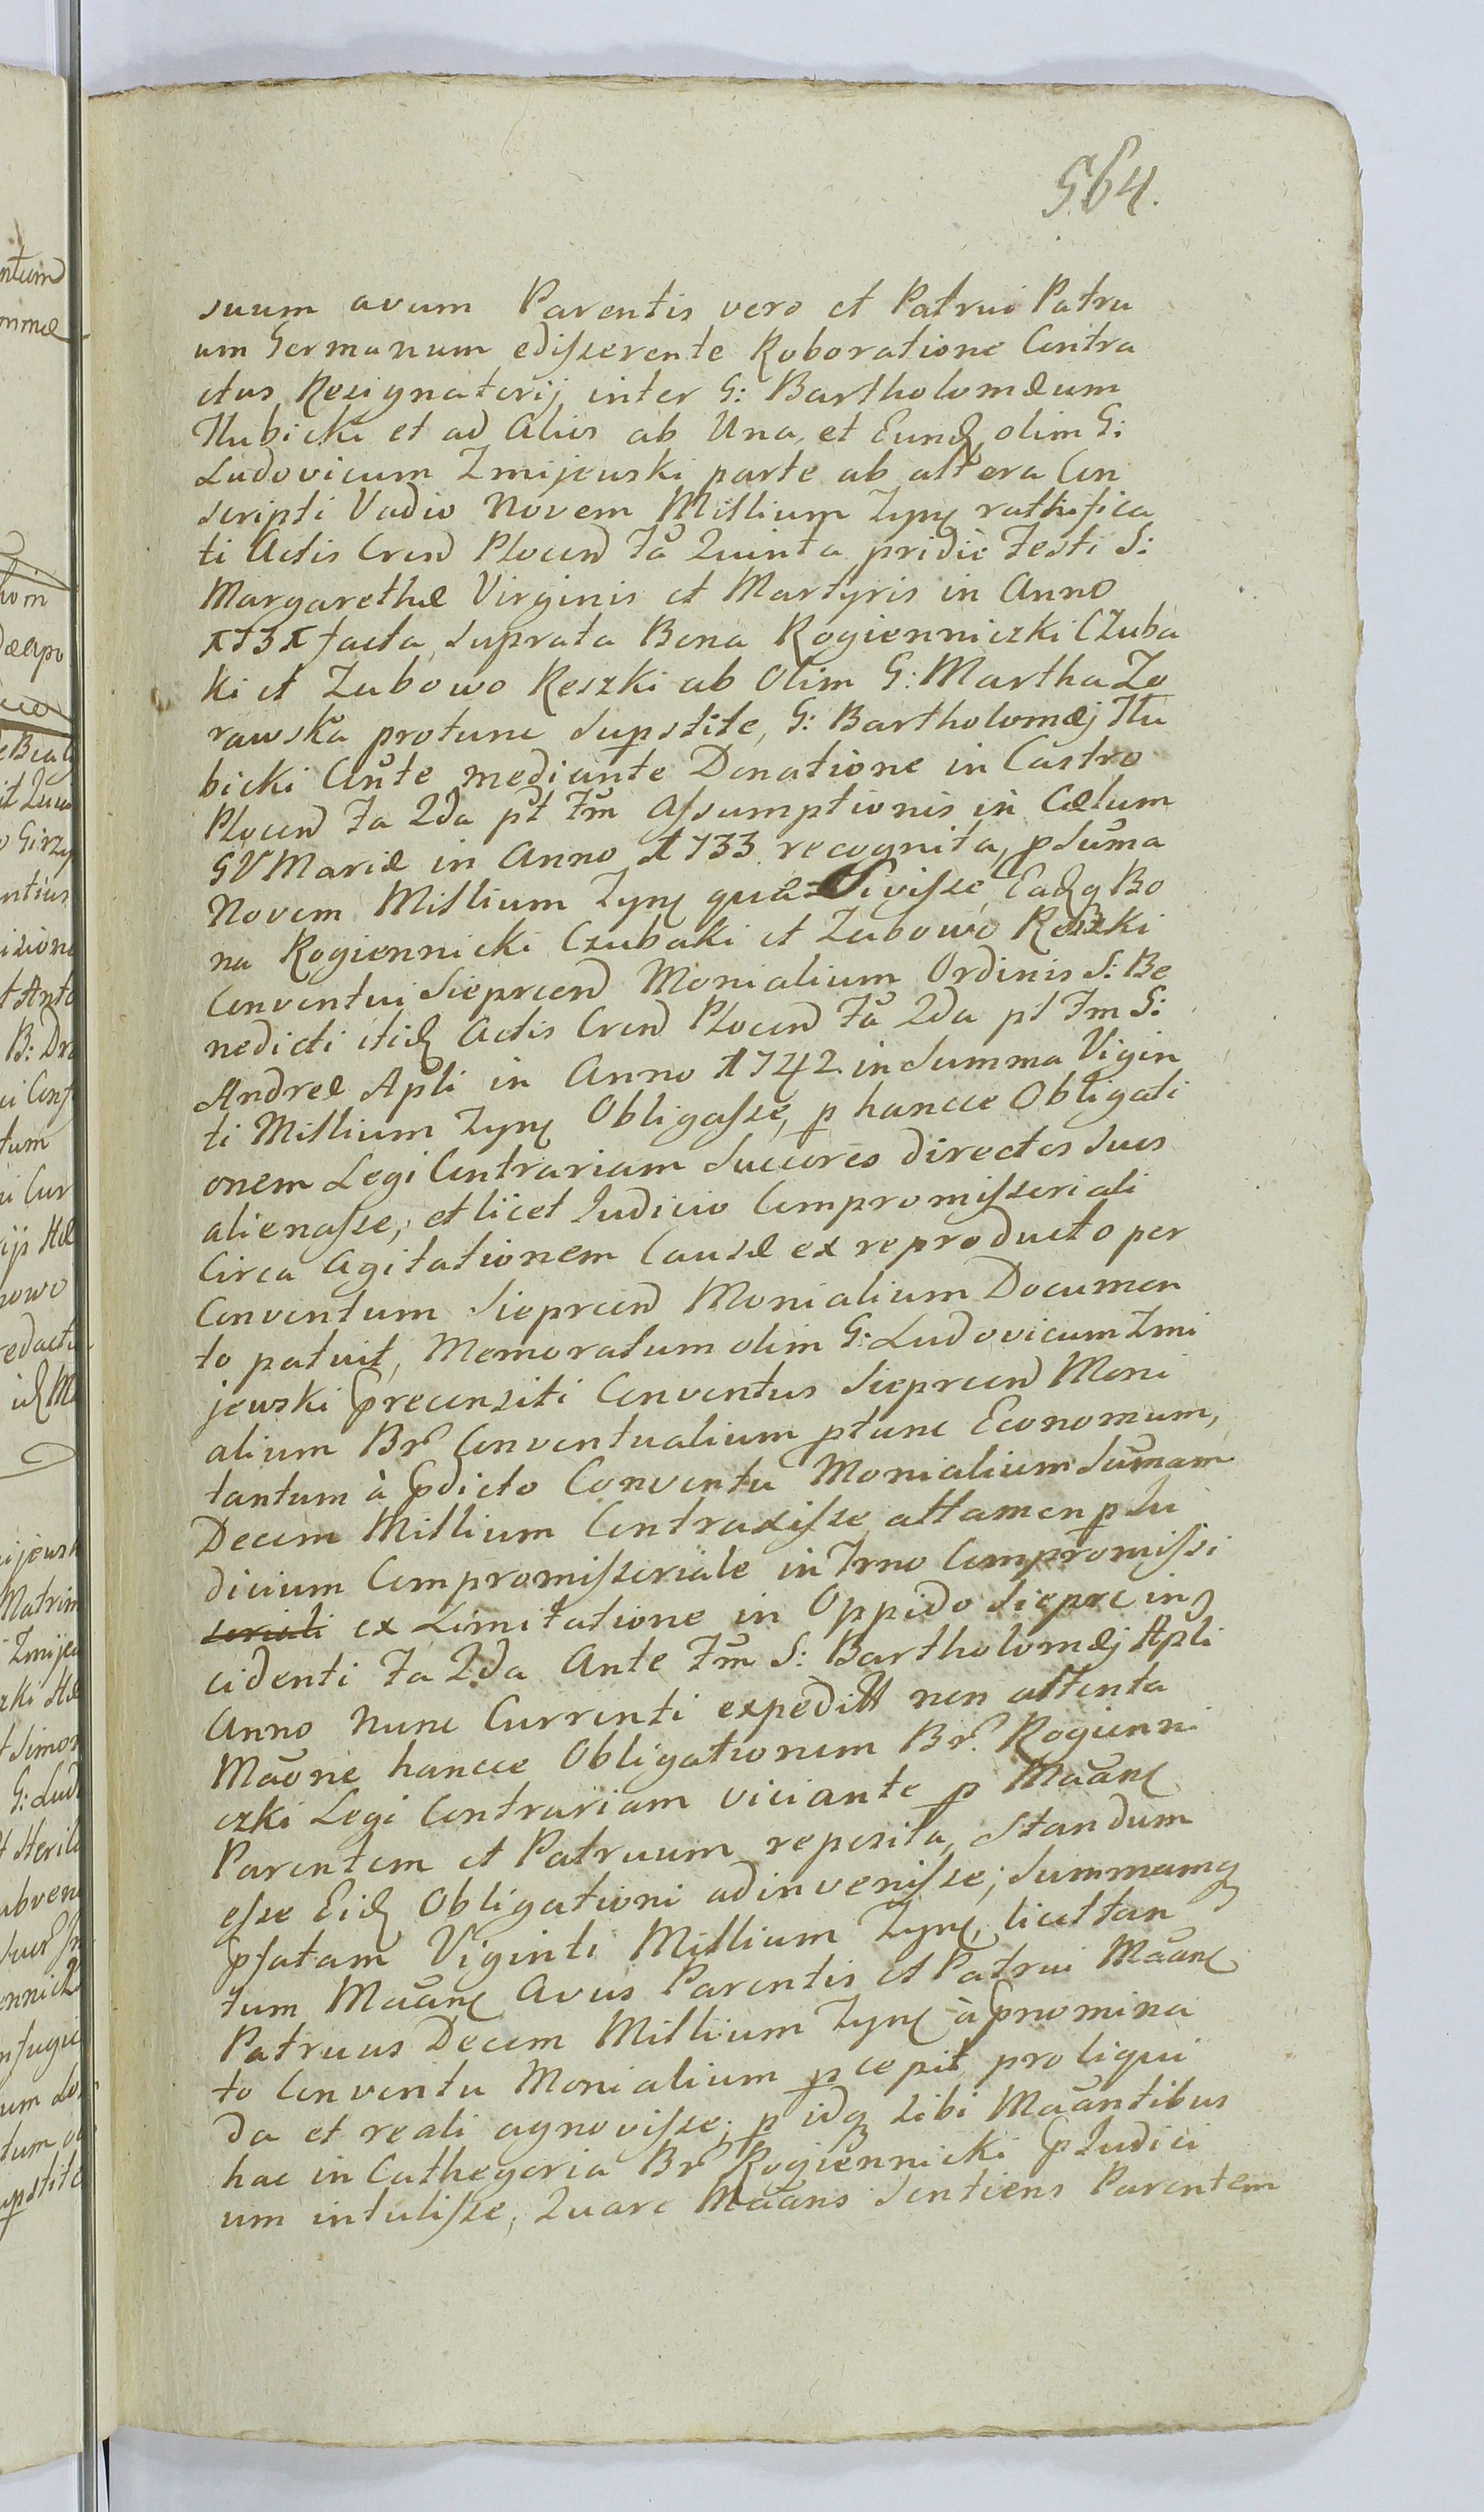 564.
suum avum Parentis vero et Patrui Patru
um Germanum edisserente Roboratione Contra
ctus Resignatorij inter G: Bartholomæum
Hubicki et ad Alios ab Una, et Eundꝫ olim G:
Ludovicum Zmijewski parte ab altera Con
scripti Vadio Novem Millium Zyꝙ rathifica
ti Actis Crenꝺ Plocenꝺ Fa Quinta pridie Festi S:
Margarethæ Virginis et Martyris in Anno
1731 facta, suprata Bona Rogienniczki Czuba
ki et Zubowo Reszki ab Olim G: Martha Zo
rawska protunc supstite, G: Bartholomæj Hu
bicki Cnte mediante Donatione in Castro
Plocenꝺ Fa 2da pt Fm Assumptionis in Cœlum
GV Mariæ in Anno 1733. recognita, p Suma
Novem Millium Zyꝙ quæsivisse, Eadꝫq Bo
na Rogiennicki Czubaki et Zubowo Reszki
Conventui Sieprcenꝺ Monialium Ordinis S: Be
nedicti itidꝫ Actis Crenꝺ Plocenꝺ Fa 2da pt Fm S:
Andreæ Apli in Anno 1742. in Summa Vigin
ti Millium Zyꝙ Obligasse, p hancce Obligati
onem Legi Contrariam Succores directos suos
alienasse; et licet Judicio Compromisseriali
Circa Agitationem Causæ ex reproducto per
Conventum Sieprcenꝺ Monialium Documen
to patuit, Memoratum olim G: Ludovicum Zmi
jewski precensiti Conventus Sieprcenꝺ Moni
alium Br Conventualium ptunc Economum,
tantum à pdicto Conventu Monialium Sumam
Decem Millium Contraxisse attamen p Ju
dicium Compromisseriale in Trno Compromissi
seriali ex Limitatione in Oppido Sieprc in
cidenti Fa 2da Ante Fm S: Bartholomæj Apli
Anno Nunc Currenti expeditt non attenta
Maone hancce Obligationem Br. Rogienni
czki Legi Contrariam viciante p Maanꝙ
Parentem et Patruum reposita, Standum
esse Eidꝫ Obligationi adinvenisse; Summamq
psatam Viginti Millium Zyꝙ, licet tan
tum Maanꝙ Avus Parentis et Patrui Maanꝙ
Patruus Decem Millium Zyꝙ à pnomina
to Conventu Monialium pcepit pro liqui
da et reali agnovisse; p idq sibi Maantibus
hac in Cathegoria Br Rogiennicki pJudici
um intulisse, Quare Maans Sentiens Parentem